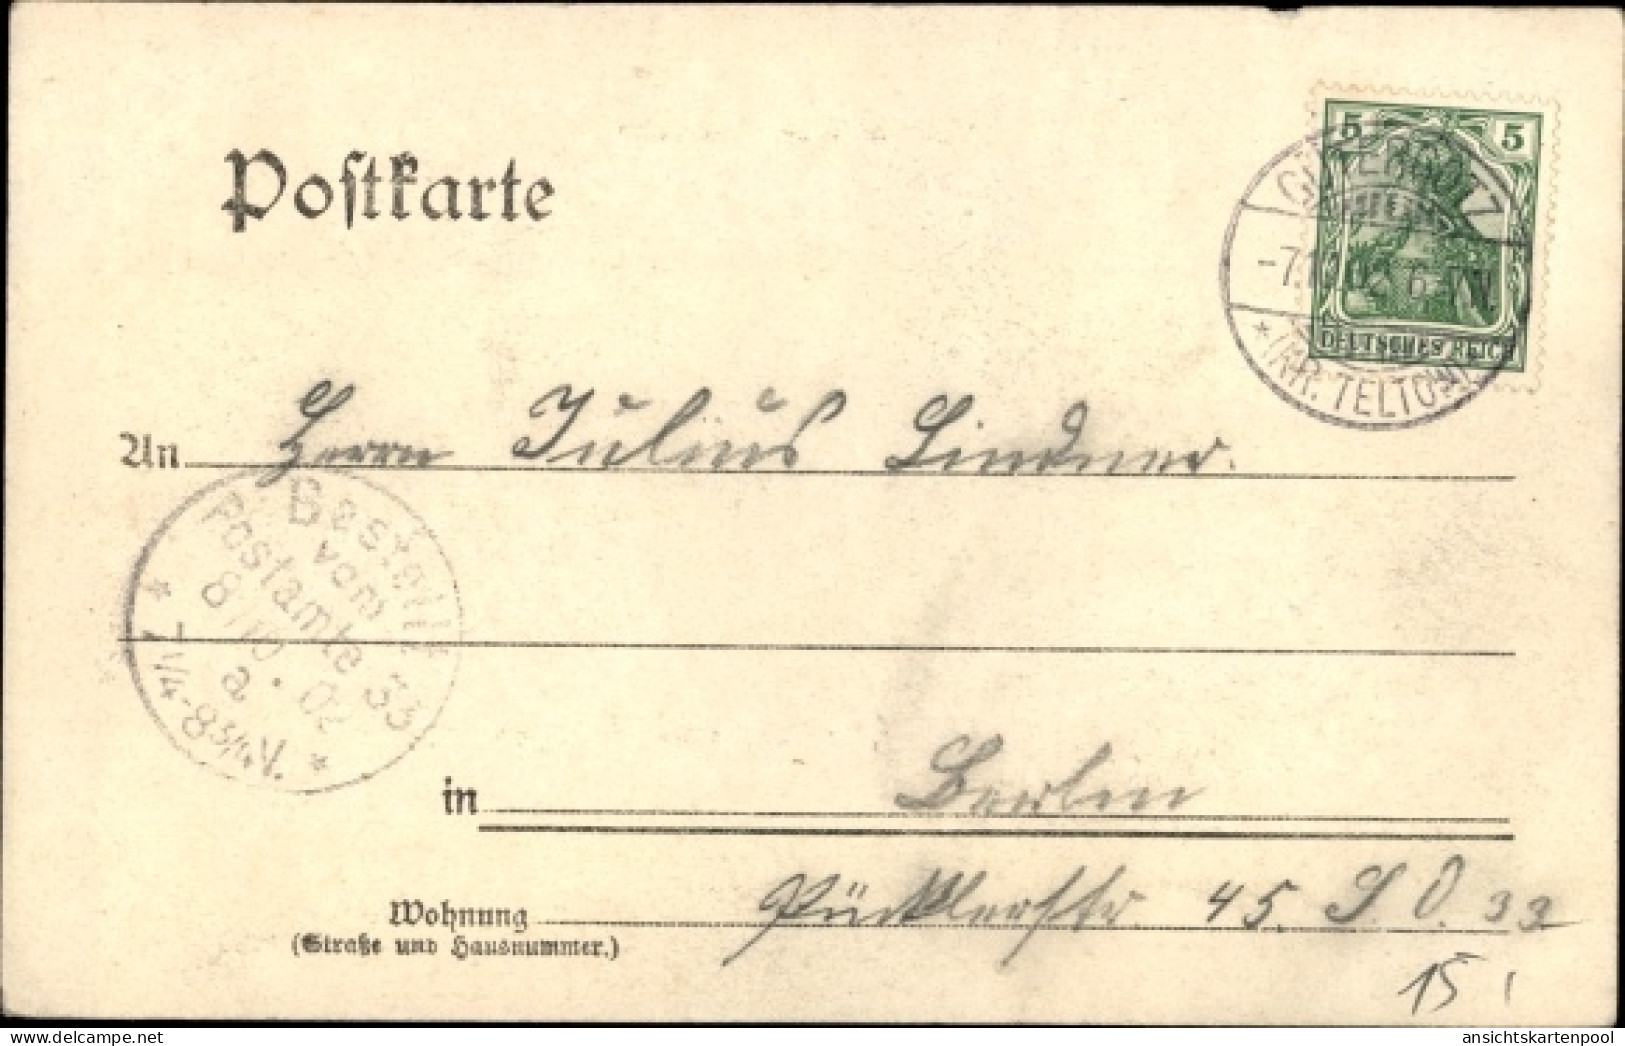 Postkarte
5 5
DEUTSCHES REICH
(KR. TELTOW)
An Herrn Julius Lindner.
Bestellt
vom
Postamte 33
8/10.02
a
7 1/4-8 3/4 V.
in Berlin
Wohnung Pücklerstr 45. S. O. 33
(Straße und Hausnummer.)
15
ansichtskartenpool